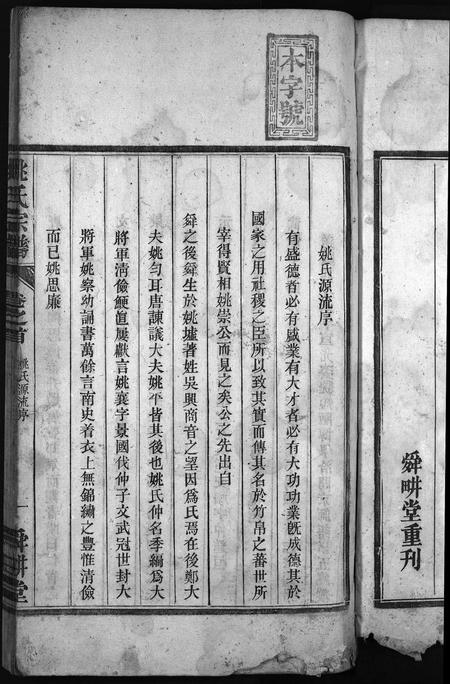 舜畊堂重刊
本字號
姚氏源流序
有盛德者必有盛業有大才者必有大功功業旣成德其於
國家之用社稷之臣所以致其實而傳其名於竹帛之蕃世所
宰得賢相姚崇公而見之矣公之先出自
舜之後舜生於姚墟著姓吳興商音之望因爲氏焉在後鄭大
夫姚勻耳唐諫議大夫姚平皆其後也姚氏仲名季編爲大
將軍清儉鯁直屢獻言姚襄字景國伐仲子文武冠世封大
將軍姚察幼誦書萬餘言南史着衣上無錦繡之豐惟清儉
而已姚思廉
姚氏宗譜
卷之首
姚氏源流序
一
舜畊堂